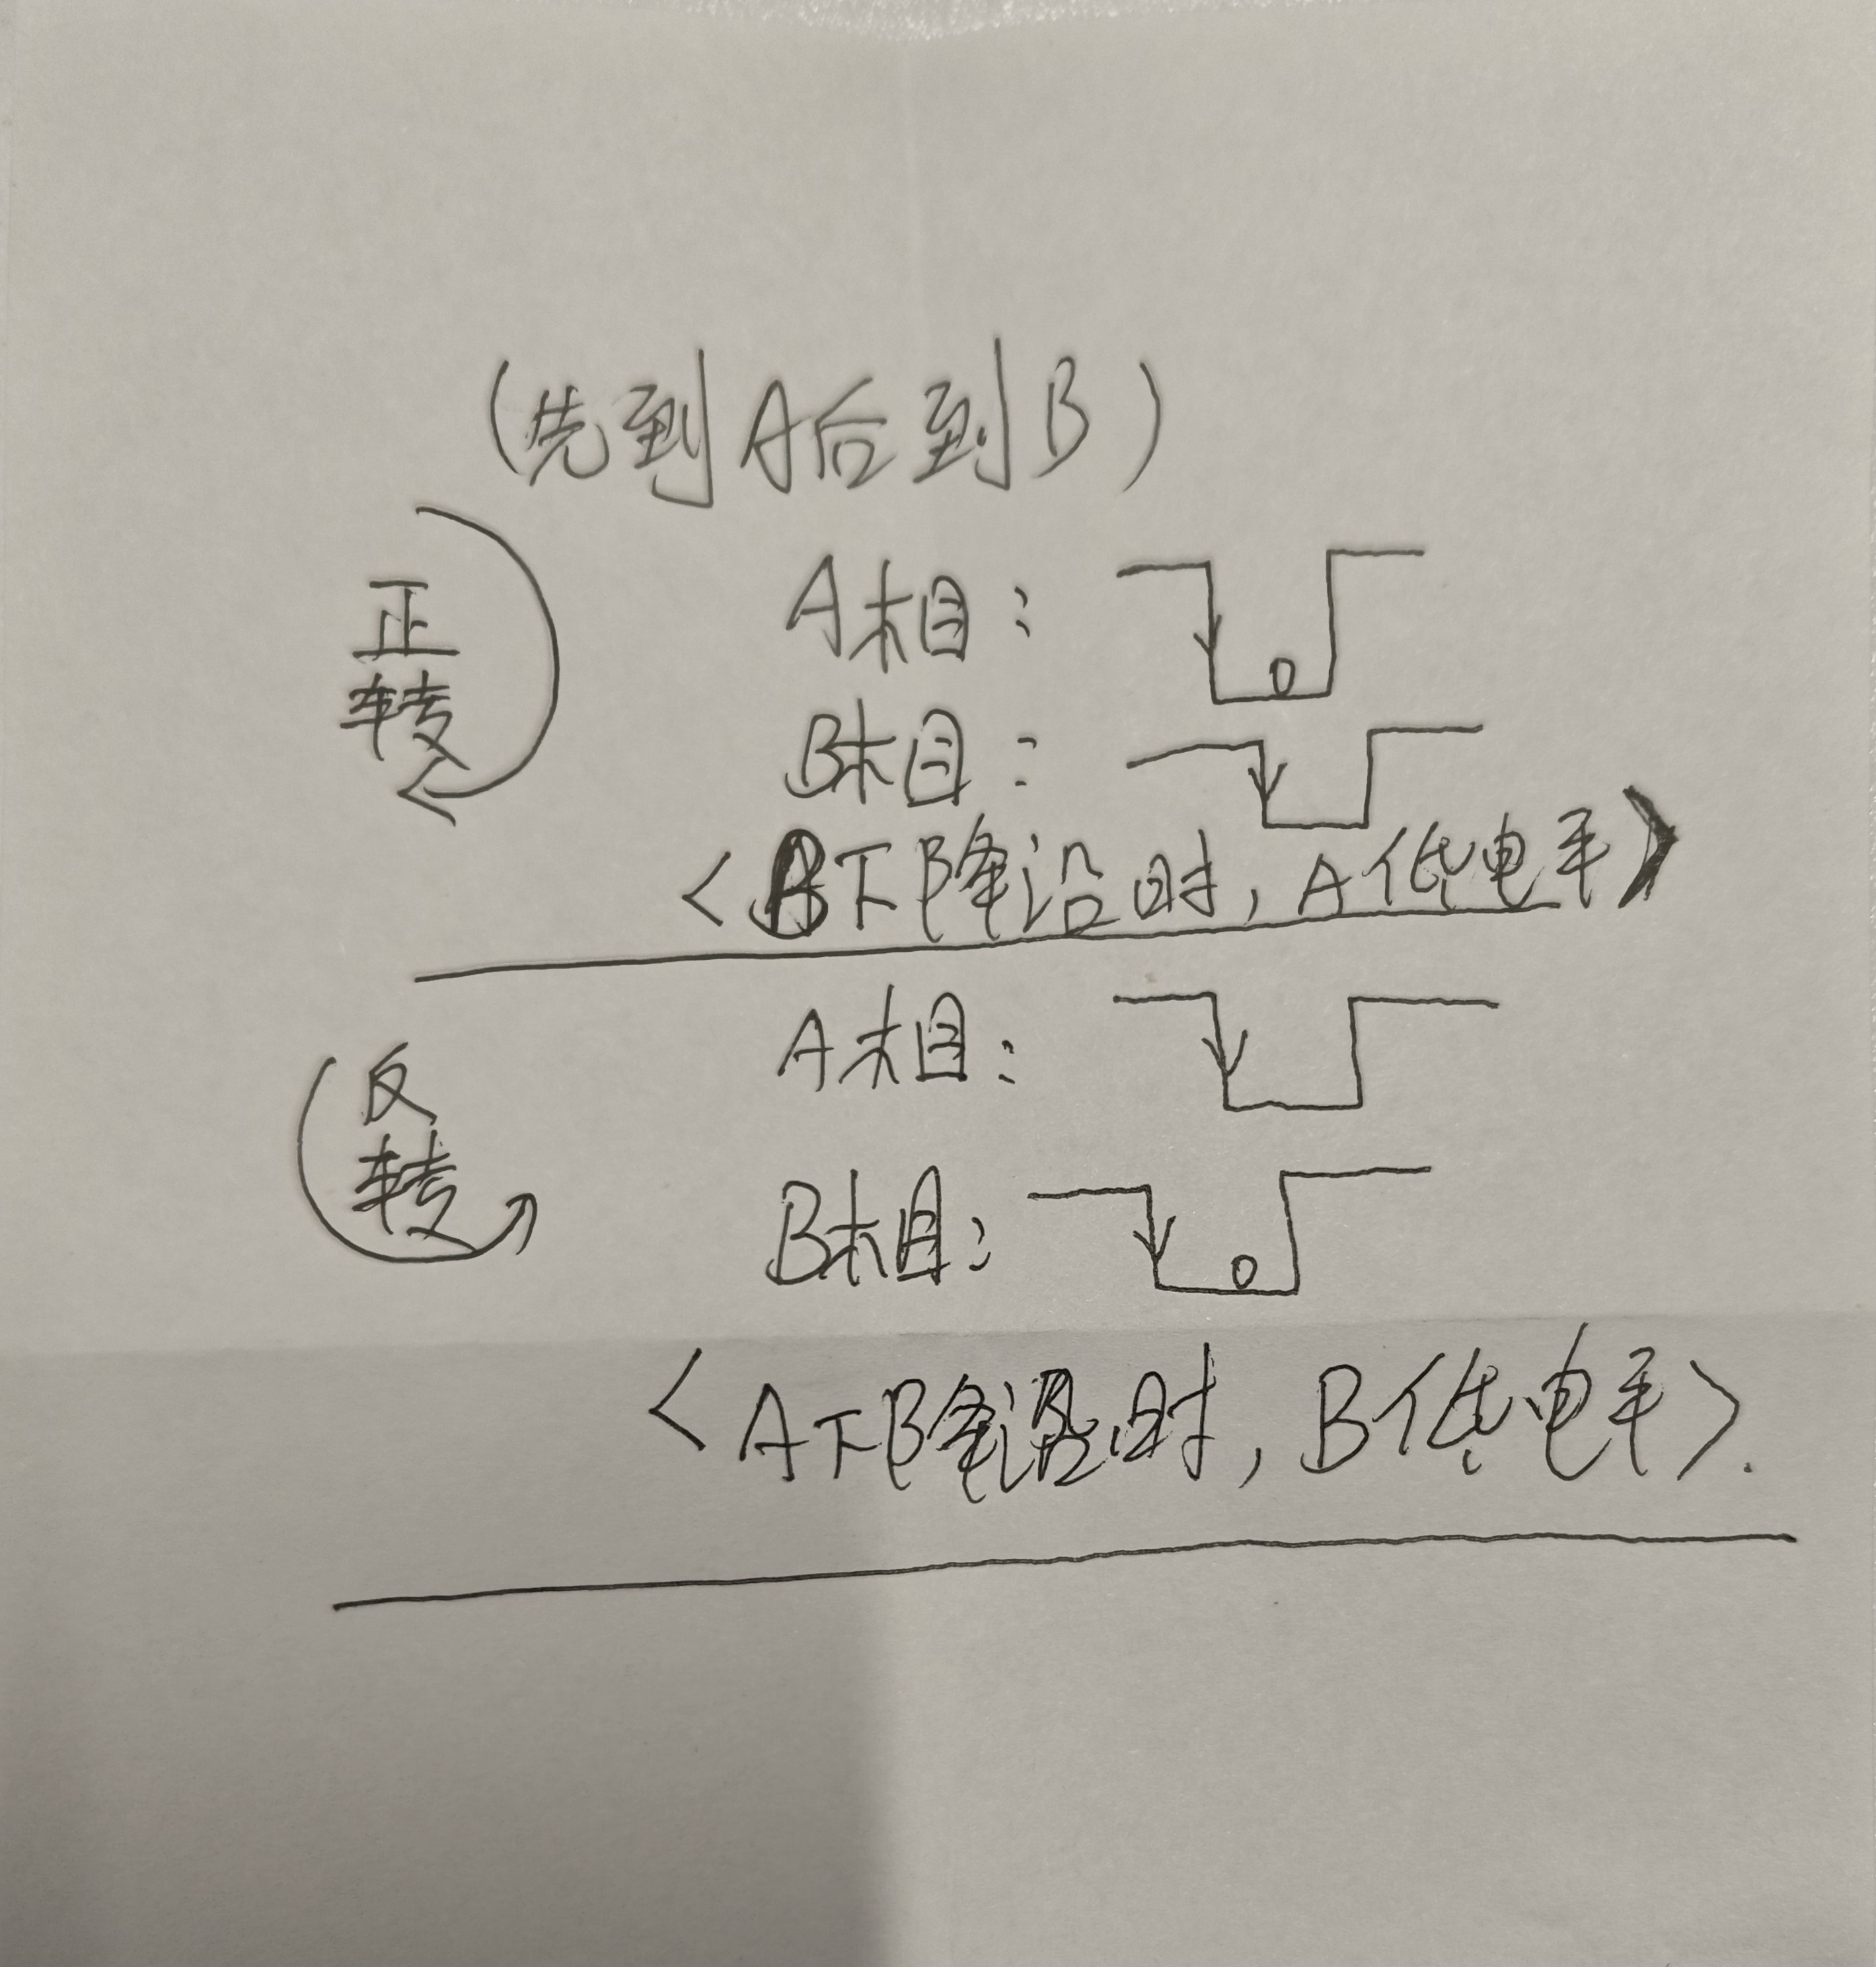 (先到A后到B)
正转
A相：
0
B相：
<B下降沿时, A低电平>
反转
A相：
B相：
0
<A下降沿时, B低电平>.